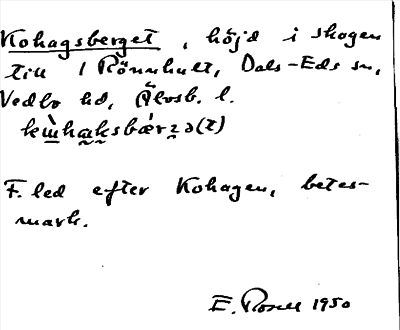 Kohagsberget, höjd i skogen
till 1 Rönnhult, Dals-Eds sn,
Vedbo hd, Älvsb. l.
kɯ̀haksbǽrzə(t)
F. led efter Kohagen, betes-
mark.
E. Rosell 1950